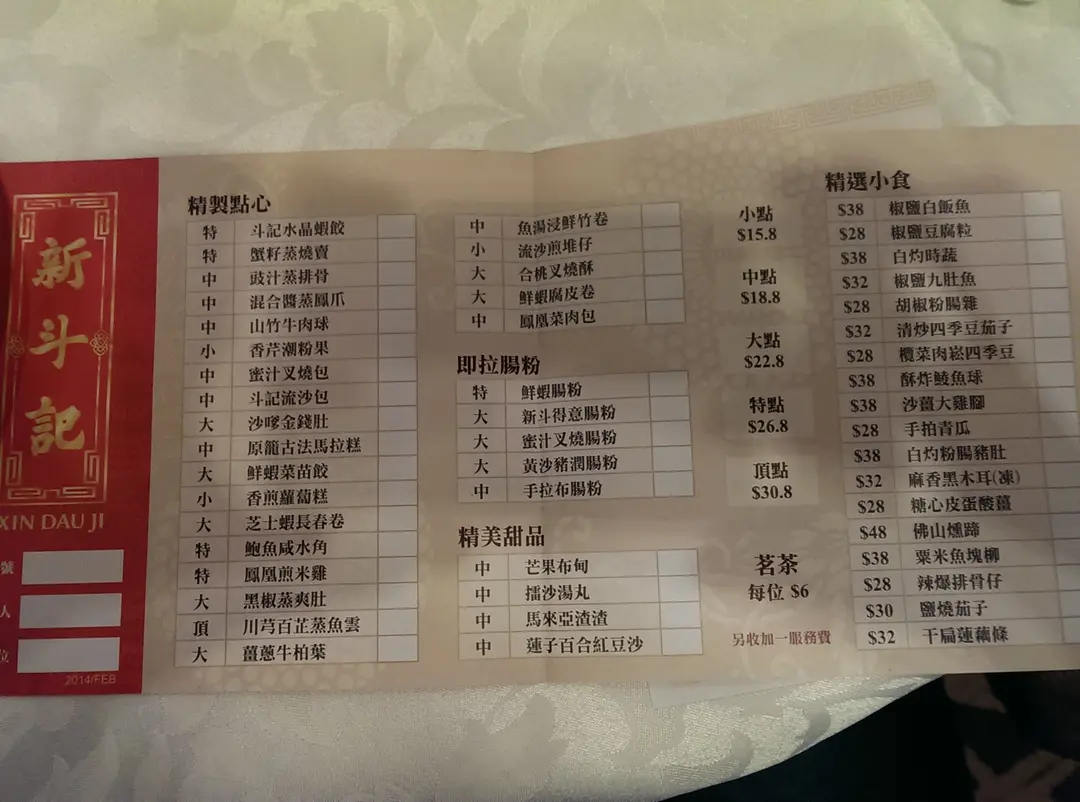 新斗記
XIN DAU JI
號
人
位
2014/FEB
精製點心
特 斗記水晶蝦餃
特 蟹籽蒸燒賣
中 豉汁蒸排骨
中 混合醬蒸鳳爪
中 山竹牛肉球
小 香芹潮粉果
中 蜜汁叉燒包
中 斗記流沙包
大 沙嗲金錢肚
中 原籠古法馬拉糕
大 鮮蝦菜苗餃
小 香煎蘿蔔糕
大 芝士蝦長春卷
特 鮑魚咸水角
特 鳳凰煎米雞
大 黑椒蒸爽肚
頂 川芎百芷蒸魚雲
大 薑蔥牛柏葉
中 魚湯浸鮮竹卷
小 流沙煎堆仔
大 合桃叉燒酥
大 鮮蝦腐皮卷
中 鳳凰菜肉包
即拉腸粉
特 鮮蝦腸粉
大 新斗得意腸粉
大 蜜汁叉燒腸粉
大 黃沙豬潤腸粉
中 手拉布腸粉
精美甜品
中 芒果布甸
中 擂沙湯丸
中 馬來亞渣渣
中 蓮子百合紅豆沙
小點
$15.8
中點
$18.8
大點
$22.8
特點
$26.8
頂點
$30.8
茗茶
每位 $6
另收加一服務費
精選小食
$38 椒鹽白飯魚
$28 椒鹽豆腐粒
$38 白灼時蔬
$32 椒鹽九肚魚
$28 胡椒粉腸雜
$32 清炒四季豆茄子
$28 欖菜肉崧四季豆
$38 酥炸鯪魚球
$38 沙薑大雞腳
$28 手拍青瓜
$38 白灼粉腸豬肚
$32 麻香黑木耳(凍)
$28 糖心皮蛋酸薑
$48 佛山燻蹄
$38 粟米魚塊柳
$28 辣爆排骨仔
$30 鹽燒茄子
$32 干扁蓮藕條